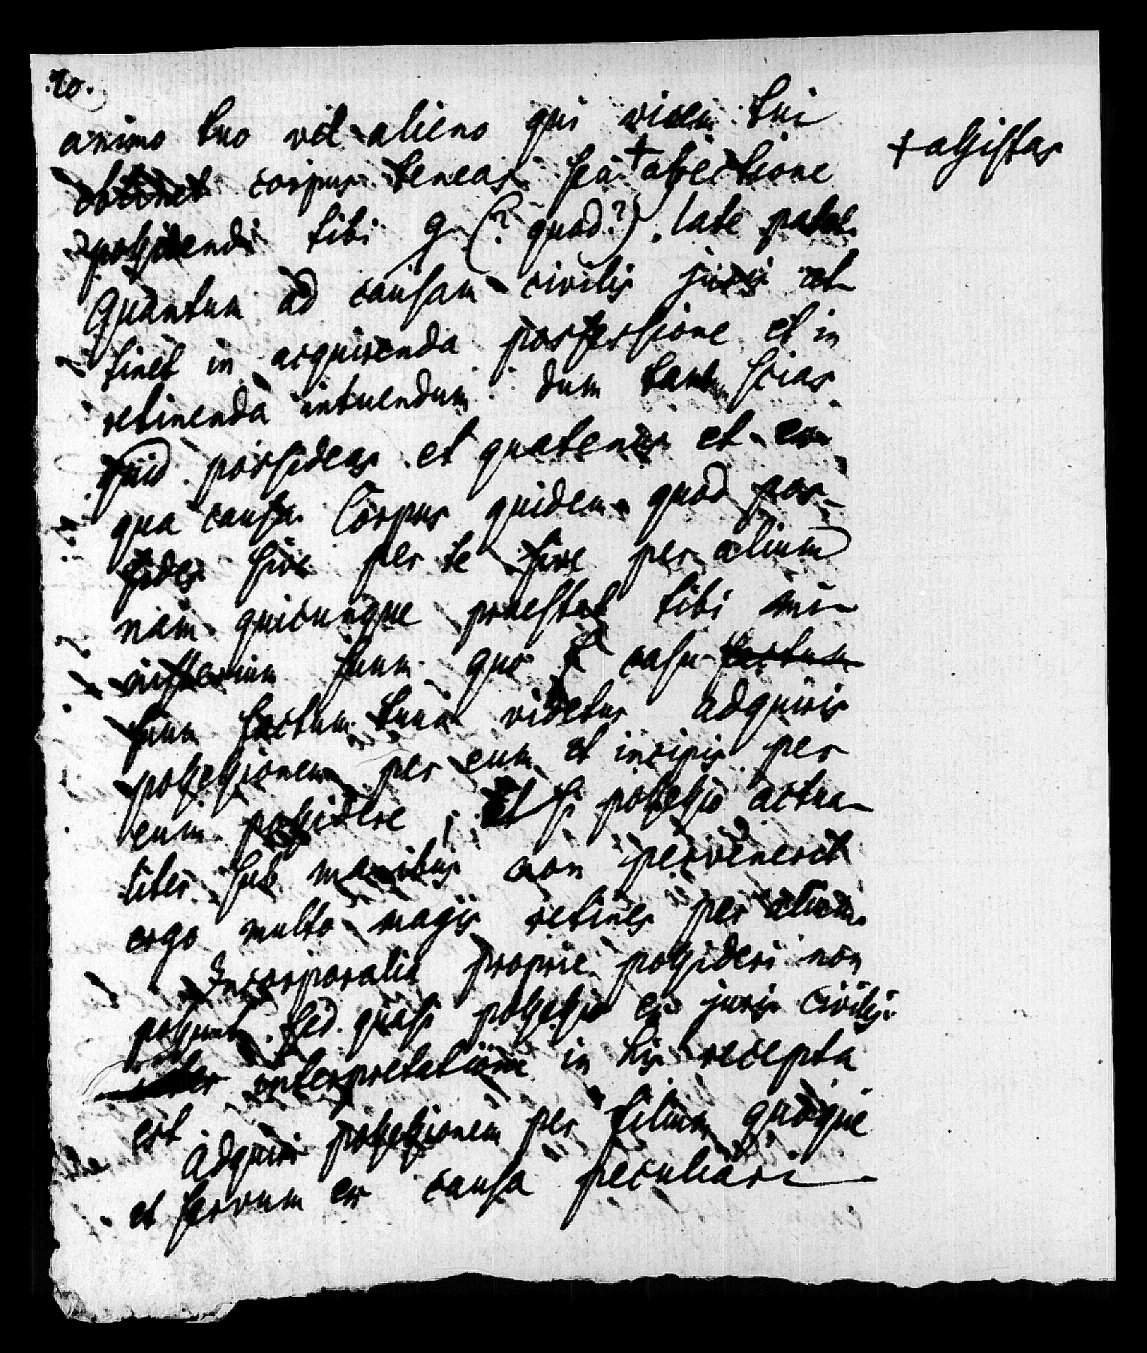 20.
animo tuo vel alieno qui vicem tui
obtinet corpus teneas sed + affectione
possidendi tibi q (? quod?). late patet
Quantum ad causam civilis juris at-
tinet in acquirenda possessione et in
retinenda intuendum dum tantum scias
quid possideas et quatenus et ex
qua causa Corpus quidem quod pos-
sides sive per te sive per alium
nam quicunque praestat tibi mi-
nisterium suum quo casu factum
suum factum tuum videtur adquiris
possessionem per eum et incipis per
eum possidere, Et si possessio actua-
liter sub manibus non pervenerit
ergo multo magis retines per alium
Incorporalia proprie possideri non
possunt. sed quasi possessio ex juris civilis
interpretatione in his recepta
est
Adquiri possessionem per filium quoque
et servum ex causa peculiari
+ assistas